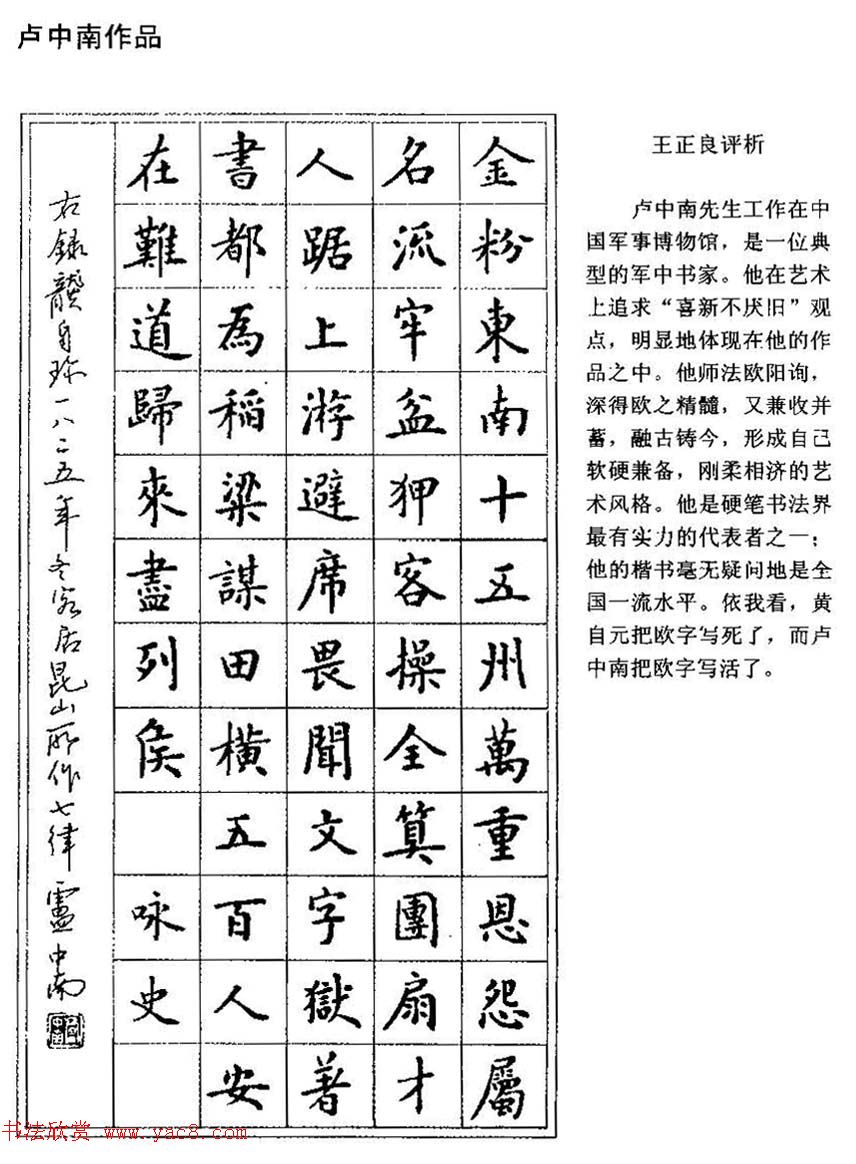 卢中南作品
金粉東南十五州萬重恩怨屬
名流牢盆狎客操全算團扇才
人踞上游避席畏聞文字獄著
書都為稻粱謀田橫五百人安
在難道歸來盡列侯 咏史
右録龔自珍一八二五年冬客居昆山所作七律 盧中南
王正良评析
卢中南先生工作在中
国军事博物馆，是一位典
型的军中书家。他在艺术
上追求“喜新不厌旧”观
点，明显地体现在他的作
品之中。他师法欧阳询，
深得欧之精髓，又兼收并
蓄，融古铸今，形成自己
软硬兼备，刚柔相济的艺
术风格。他是硬笔书法界
最有实力的代表者之一；
他的楷书毫无疑问地是全
国一流水平。依我看，黄
自元把欧字写死了，而卢
中南把欧字写活了。
书法欣赏 www.yac8.com